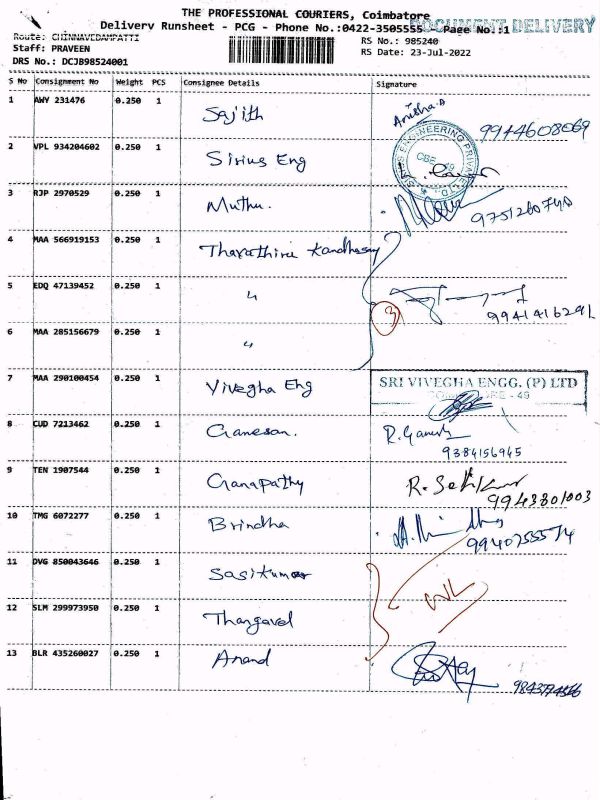 THE PROFESSIONAL COURIERS, Coimbatore
DOCUMENT DELIVERY
Delivery Runsheet - PCG - Phone No.:0422-3505555 - Page No.:1
Route: CHINNAVEDAMPATTI
RS No.: 985240
Staff: PRAVEEN
RS Date: 23-Jul-2022
DRS No.: DCJB98524001
S No Consignment No Weight PCS Consignee Details Signature
1 AWY 231476 0.250 1 Sajith Anisha.A 9944608069
2 VPL 934204602 0.250 1 Sirius Eng
ENGINEERING PRIVATE LTD.
CBE - 49
3 RJP 2970529 0.250 1 Muthu. 9751260740
4 MAA 566919153 0.250 1 Tharathira Kandhasay
5 EDQ 47139452 0.250 1 " 3 9941416291
6 MAA 285156679 0.250 1 "
7 MAA 290100454 0.250 1 Vivegha Eng SRI VIVEGHA ENGG. (P) LTD
- 49
8 CUD 7213462 0.250 1 Ganesan. R.Ganesh
9384156945
9 TEN 1907544 0.250 1 Ganapathy
9943801003
10 TMG 6072277 0.250 1 Brindha
9940755574
11 DVG 850043646 0.250 1 Sasikumar
12 SLM 299973950 0.250 1 Thangavel
13 BLR 435260027 0.250 1 Anand